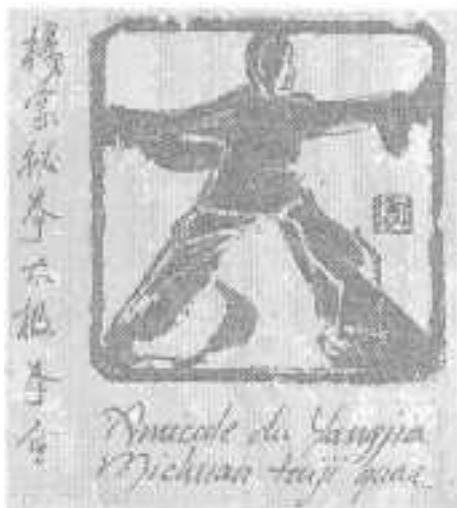 楊家秘太極拳会
Amicale du Yangjia
Michuan taiji quan